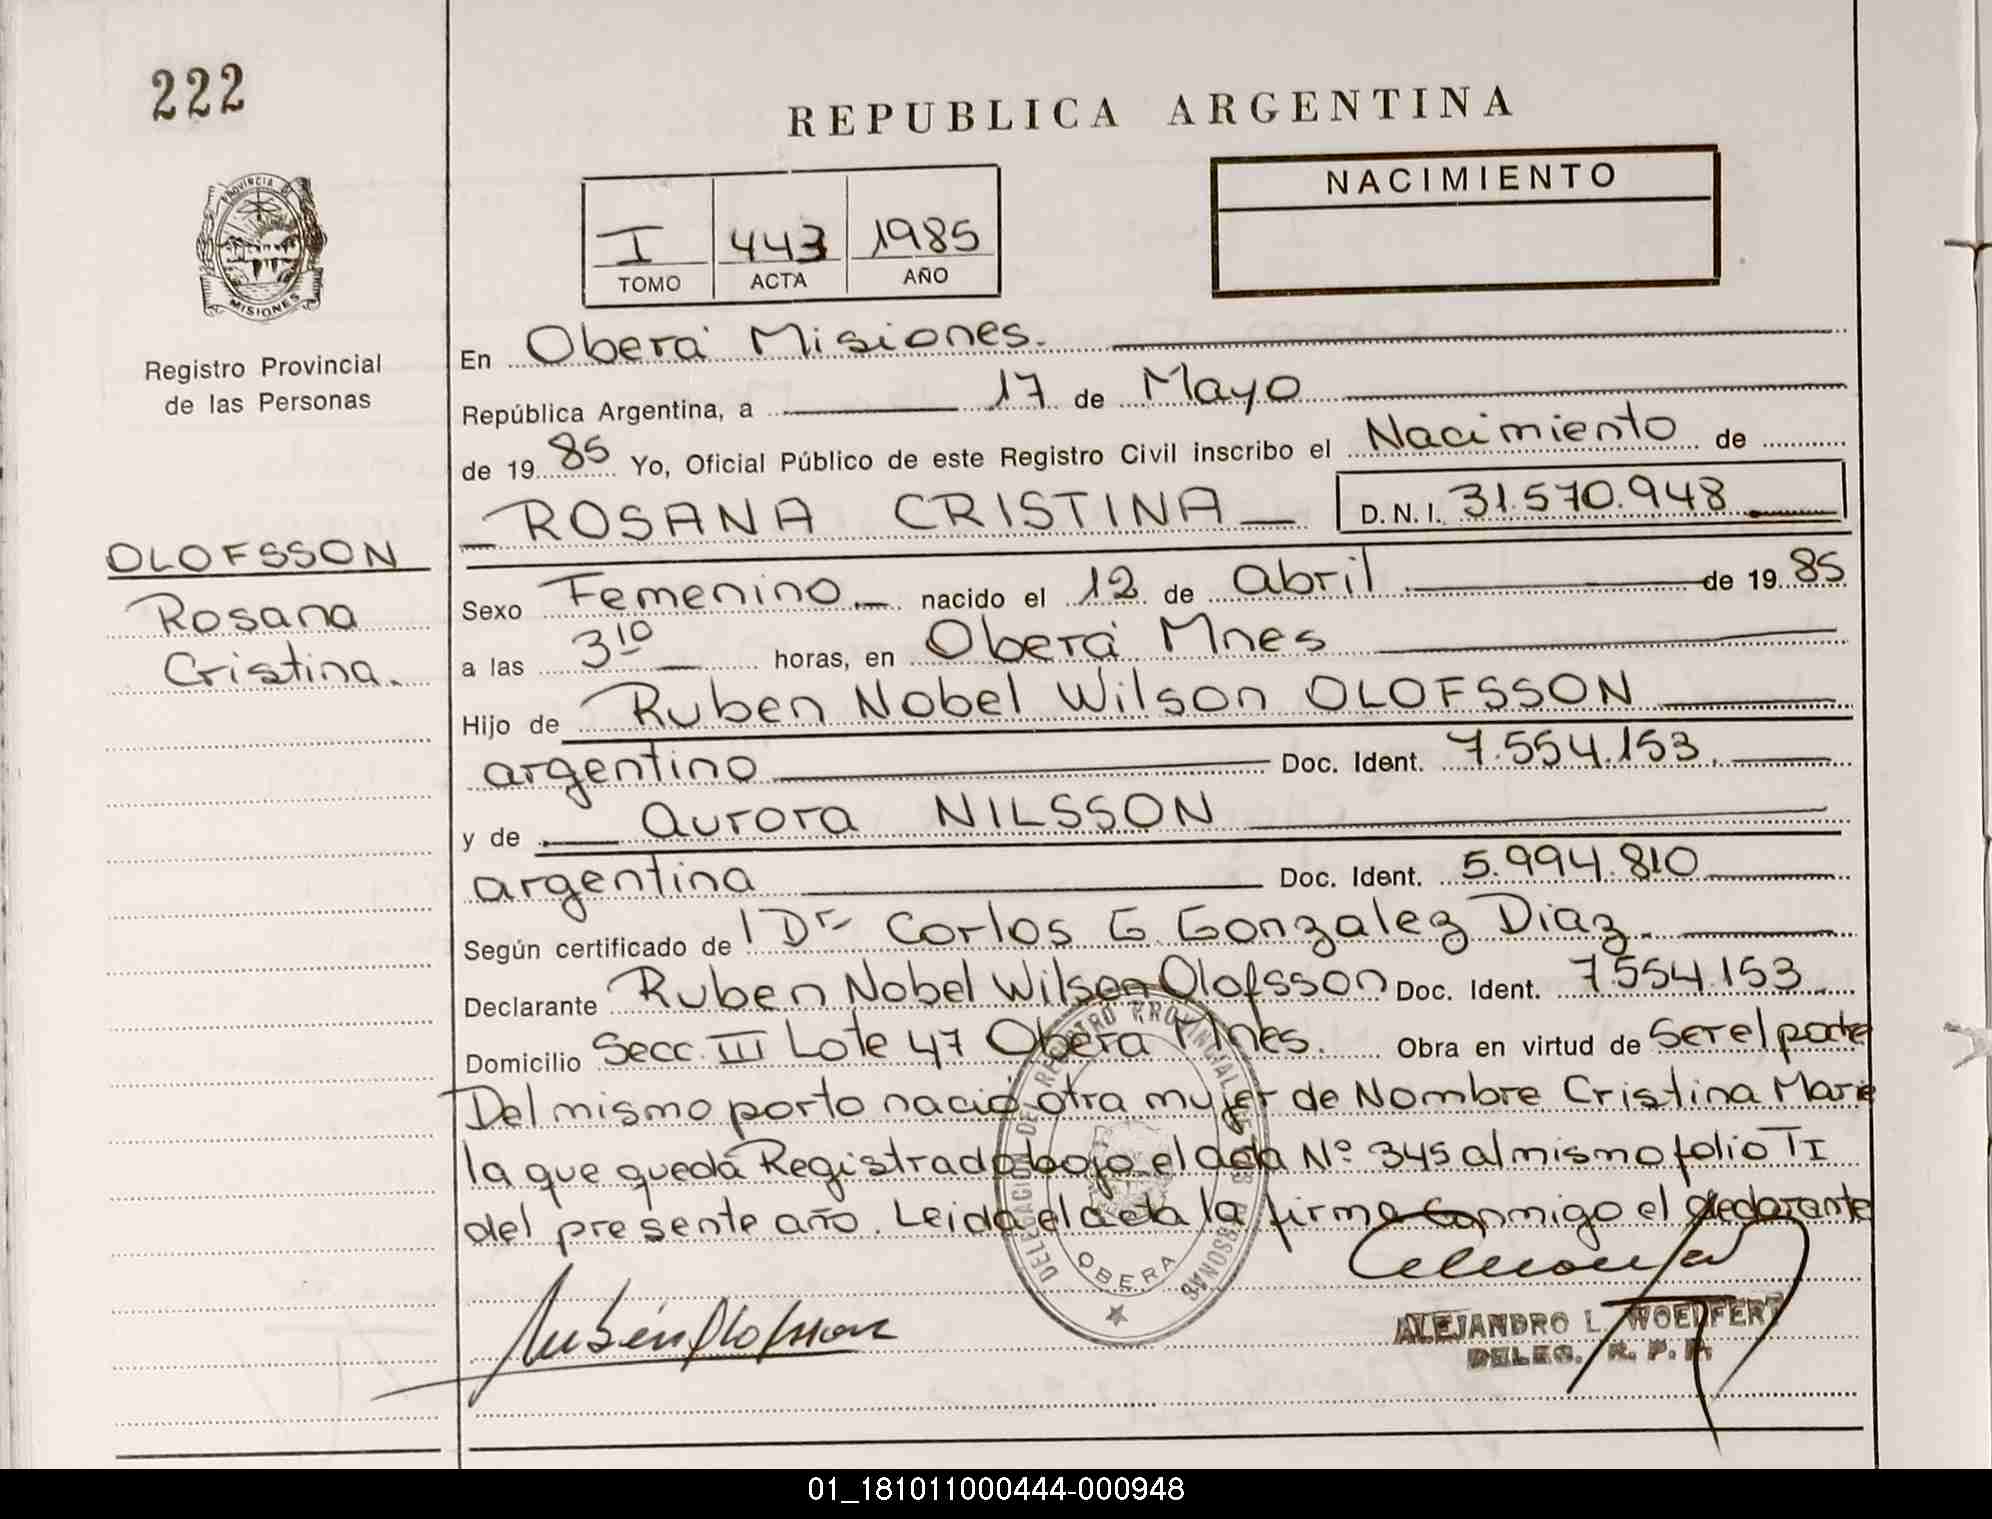 222
REPUBLICA ARGENTINA
PROVINCIA D
MISIONES
I 443 1985
TOMO ACTA AÑO
NACIMIENTO
Registro Provincial
de las Personas
OLOFSSON
Rosana
Cristina.
En Oberá Misiones.
República Argentina, a 17 de Mayo
de 1985 Yo, Oficial Público de este Registro Civil inscribo el Nacimiento de
ROSANA CRISTINA D.N.I. 31.570.948
Sexo Femenino nacido el 12 de abril de 1985
a las 3 10 horas, en Oberá Mnes
Hijo de Ruben Nobel Wilson OLOFSSON
argentino Doc. Ident. 7.554.153.
y de aurora NILSSON
argentina Doc. Ident. 5.994.810
Según certificado de Dr Carlos G Gonzalez Diaz.
Declarante Ruben Nobel Wilson Olofsson Doc. Ident. 7554.153
Domicilio Secc. III Lote 47 Oberá Mnes. Obra en virtud de Ser el padre
Del mismo parto nació otra mujer de Nombre Cristina Marie
la que queda Registrado bajo el acta Nº 345 al mismo folio TI
del presente año. Leida el acta la firma conmigo el declarante
DELEGACION DE REGISTRO PROVINCIAL DE LAS PERSONAS
OBERA
Rubén Olofsson
ALEJANDRO L. WOELFERT
DELEG. R. P. P.
01_181011000444-000948